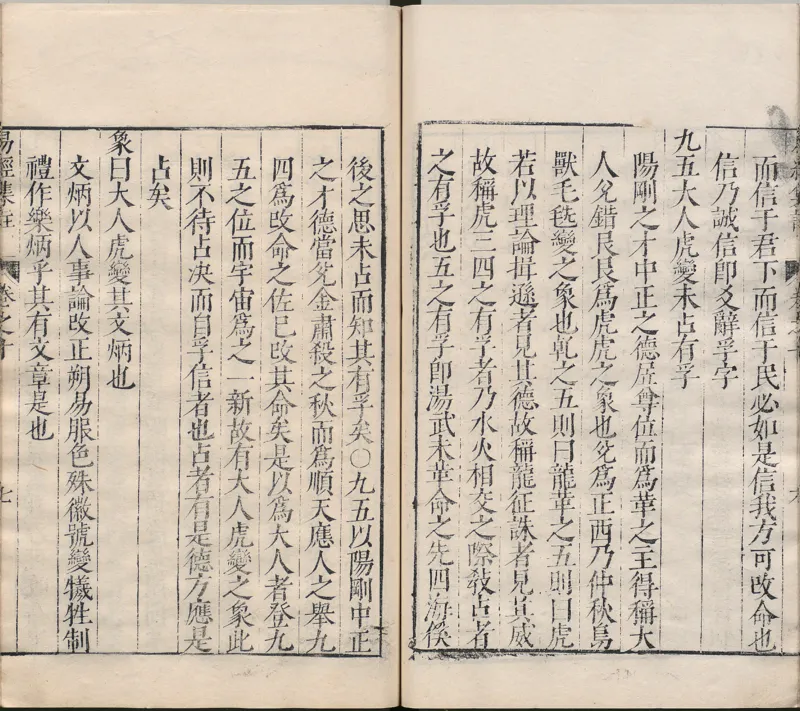 而信于君下而信于民必如是信我方可改命也
信乃誠信即爻辭孚字
九五大人虎變未占有孚
陽剛之才中正之德居尊位而爲革之主得稱大
人兌錯艮艮爲虎虎之象也兌爲正西乃仲秋鳥
獸毛毨變之象也乾之五則曰龍革之五則曰虎
若以理論揖遜者見其德故稱龍征誅者見其威
故稱虎三四之有孚者乃水火相交之際教占者
之有孚也五之有孚即湯武未革命之先四海傒
後之思未占而知其有孚矣○九五以陽剛中正
之才德當兌金肅殺之秋而爲順天應人之舉九
四爲改命之佐已改其命矣是以爲大人者登九
五之位而宇宙爲之一新故有大人虎變之象此
則不待占决而自孚信者也占者有是德方應是
占矣
象曰大人虎變其文炳也
文炳以人事論改正朔易服色殊徽號變犧牲制
禮作樂炳乎其有文章是也
易經集註
卷之十
七